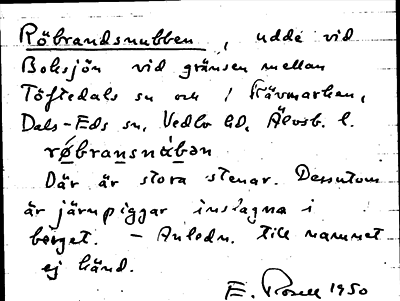 Röbrandsnubben, udde vid
Boksjön vid gränsen mellan
Töftedals sn och i Hävmarken,
Dals-Eds sn, Vedbo hd, Älvsb. l.
røbransnubən
Där är stora stenar. Dessutom
är järnpiggar inslagna i
berget. - Anledn. till namnet
ej känd.
E. Rosell 1950